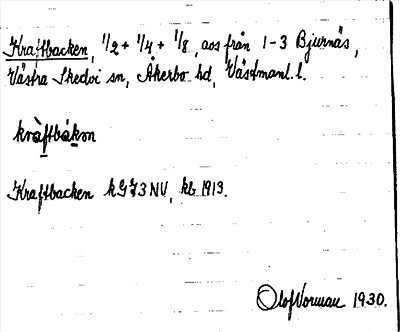 Kraftbacken, 1/2 + 1/4 + 1/8, aos från 1-3 Bjurnäs,
Västra Skedvi sn, Åkerbo hd, Västmanl. l.
kràftbákɷn
Kraftbacken kGJ3NV, kb 1913.
Olof Norman 1930.